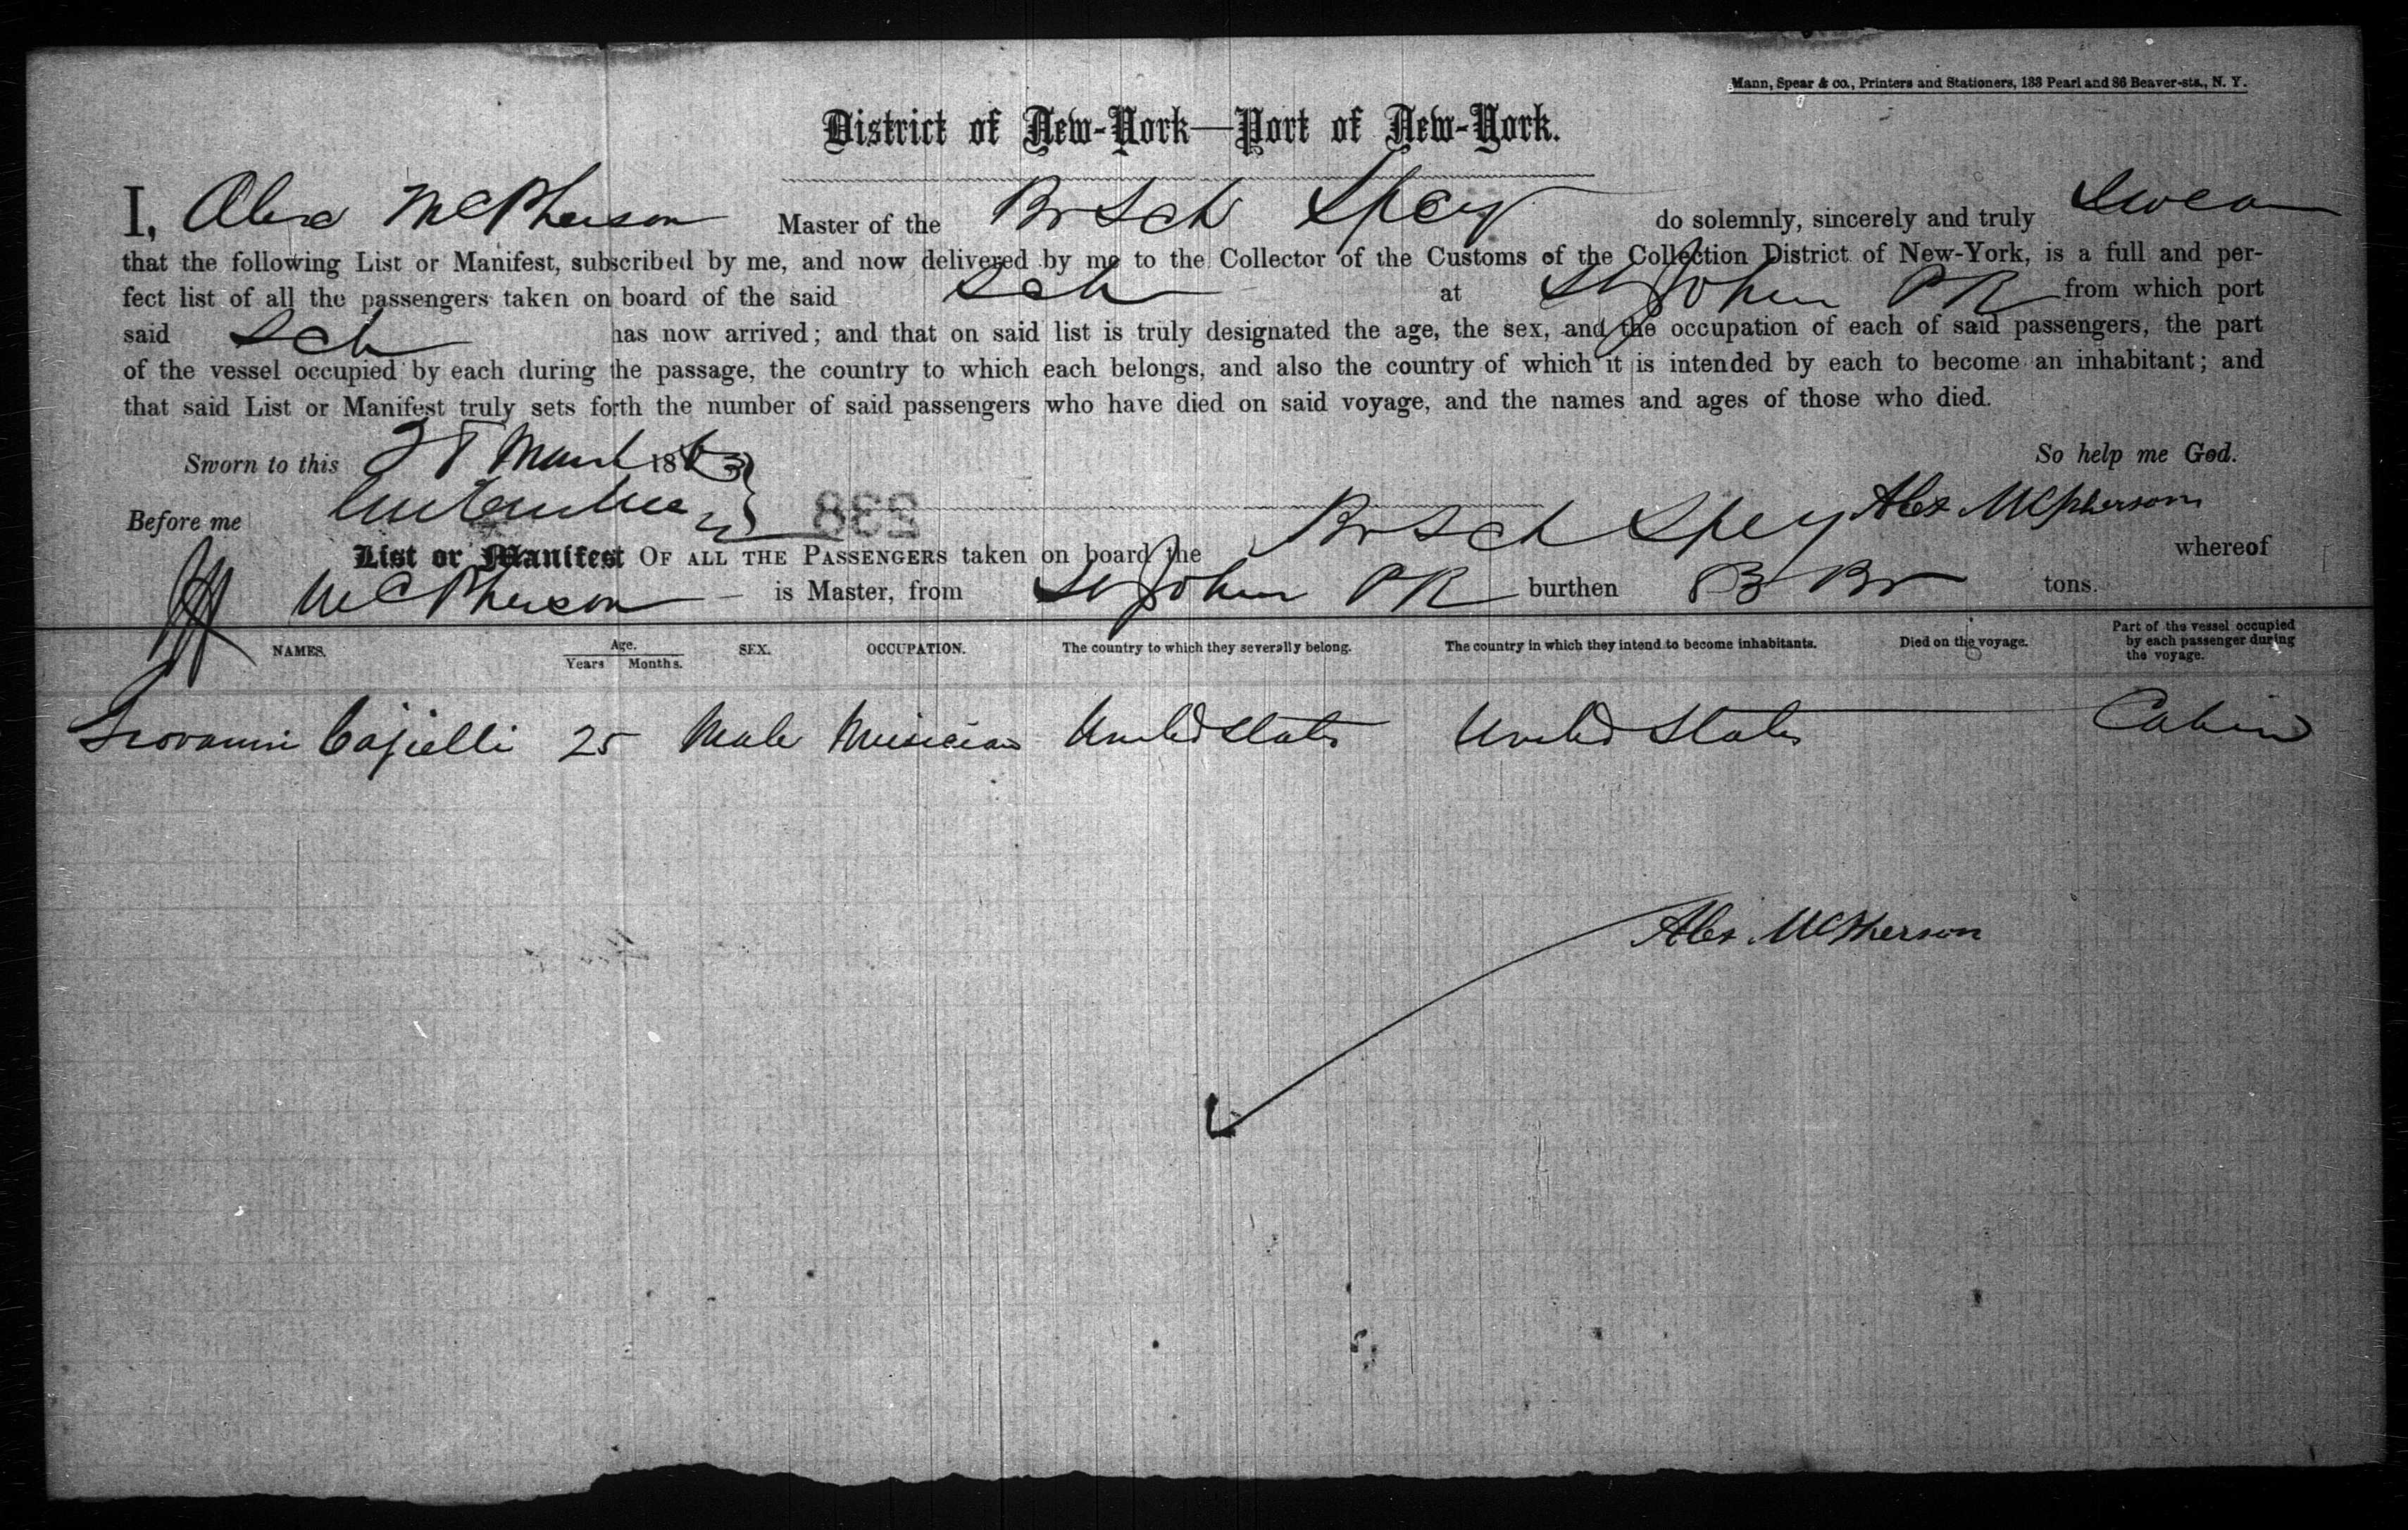 Mann, Spear & co., Printers and Stationers, 133 Pearl and 86 Beaver-sts., N. Y.
District of New-York—Port of New-York.
I, Alex McPherson Master of the Br Sch Spey do solemnly, sincerely and truly Swear
that the following List or Manifest, subscribed by me, and now delivered by me to the Collector of the Customs of the Collection District of New-York, is a full and per-
fect list of all the passengers taken on board of the said Sch at St John PR from which port
said Sch has now arrived; and that on said list is truly designated the age, the sex, and the occupation of each of said passengers, the part
of the vessel occupied by each during the passage, the country to which each belongs, and also the country of which it is intended by each to become an inhabitant; and
that said List or Manifest truly sets forth the number of said passengers who have died on said voyage, and the names and ages of those who died.
Sworn to this March 1863 So help me God.
Before me Alex McPherson
List or Manifest OF ALL THE PASSENGERS taken on board the Br Sch Spey whereof
McPherson is Master, from St John PR burthen tons.
NAMES. Age. Years Months. SEX. OCCUPATION. The country to which they severally belong. The country in which they intend to become inhabitants. Died on the voyage. Part of the vessel occupied by each passenger during the voyage.
Giovanni 25 Male Musician United States United States Cabin
Alex. McPherson